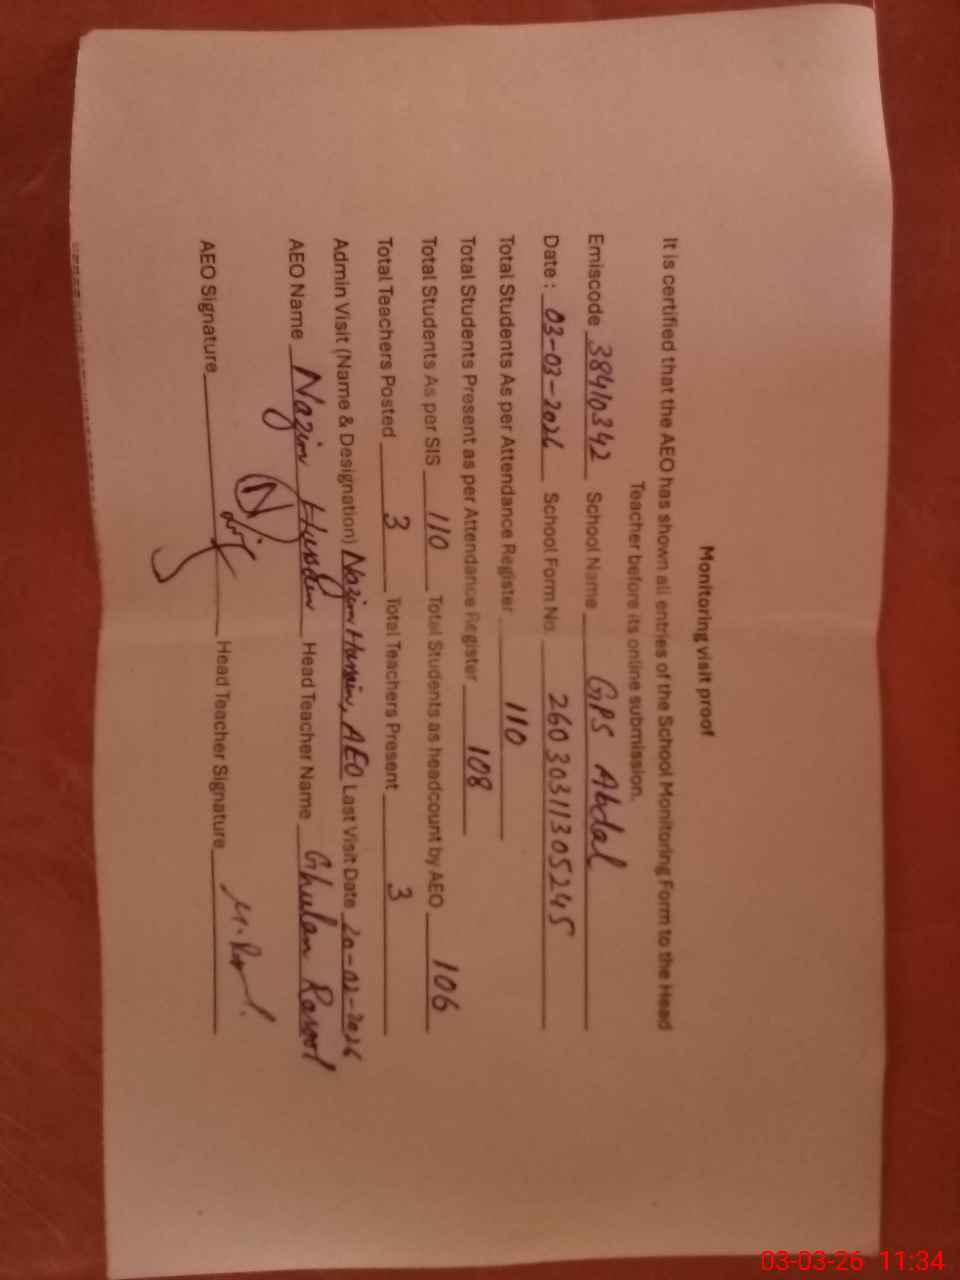 Monitoring visit proof
It is certified that the AEO has shown all entries of the School Monitoring Form to the Head
Teacher before its online submission.
Emiscode 38410342 School Name GPS Abdal
Date: 03-03-2026 School Form No. 26030311305245
Total Students As per Attendance Register 110
Total Students Present as per Attendance Register 108
Total Students As per SIS 110 Total Students as headcount by AEO 106
Total Teachers Posted 3 Total Teachers Present 3
Admin Visit (Name & Designation) Nazim Hussain, AEO Last Visit Date 20-02-2026
AEO Name Nazim Hussain Head Teacher Name Ghulam Rasool
AEO Signature Head Teacher Signature
03-03-26 11:34